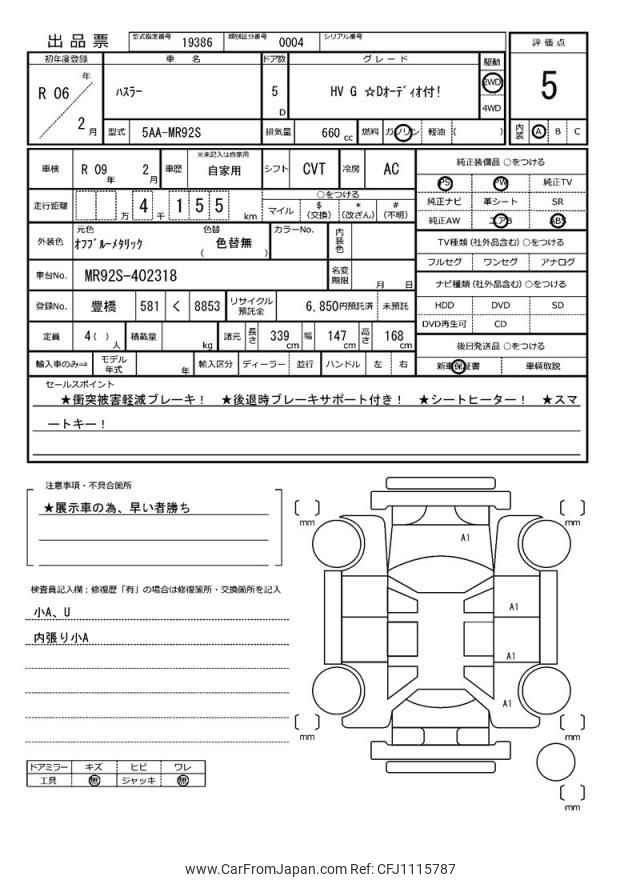 出品票 型式指定番号 19386 類別区分番号 0004 シリアル番号
評価点
初年度登録 車名 ドア数 グレード 駆動
R 06 年 2 月 ハスラー 5 D HV G ☆Dオーディオ付! 2WD 4WD
5
型式 5AA-MR92S 排気量 660 cc 燃料 ガソリン 軽油 ( )
内装 A B C
車検 R 09 年 2 月 車歴 ※未記入は自家用 自家用 シフト CVT 冷房 AC
走行距離 万 4 千 1 5 5 km
○をつける
マイル $ (交換) * (改ざん) # (不明)
外装色 元色 オフブルーメタリック 色替 色替無 ( ) カラーNo. 内装色
車台No. MR92S-402318 名変期限 月 日
登録No. 豊橋 581 く 8853 リサイクル預託金 6,850円預託済 未預託
定員 4( ) 人 積載量 kg 諸元 長さ 339 cm 幅 147 cm 高さ 168 cm
輸入車のみ⇒ モデル年式 年 輸入区分 ディーラー 並行 ハンドル 左 右
純正装備品 ○をつける
PS PW 純正TV
純正ナビ 革シート SR
純正AW エアB ABS
TV種類 (社外品含む) ○をつける
フルセグ ワンセグ アナログ
ナビ種類 (社外品含む) ○をつける
HDD DVD SD
DVD再生可 CD
後日発送品 ○をつける
新車保証書 車輌取説
セールスポイント
★衝突被害軽減ブレーキ! ★後退時ブレーキサポート付き! ★シートヒーター! ★スマ
ートキー!
注意事項・不具合箇所
★展示車の為、早い者勝ち
検査員記入欄:修復歴「有」の場合は修復箇所・交換箇所を記入
小A、U
内張り小A
ドアミラー キズ ヒビ ワレ
工具 無 ジャッキ 無
[ ] mm
[ ] mm
A1
A1
A1
A1
[ ] mm
[ ] mm
[ ] mm
www.CarFromJapan.com Ref: CFJ1115787